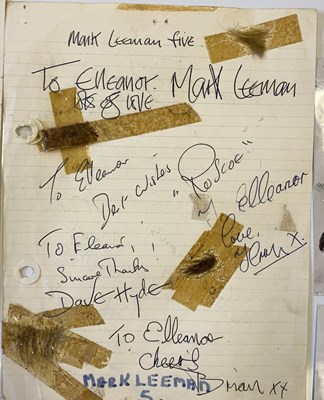 Mark Leeman five
To Elleanor. Mark Leeman
lots of love
To Elleanor
Best wishes
"Roscoe"
To Elleanor
love,
x.
To Eleanor,
Sincere Thanks
Dave Hyde
To Elleanor
Cheers
Brian xx
MARK LEEMAN
5